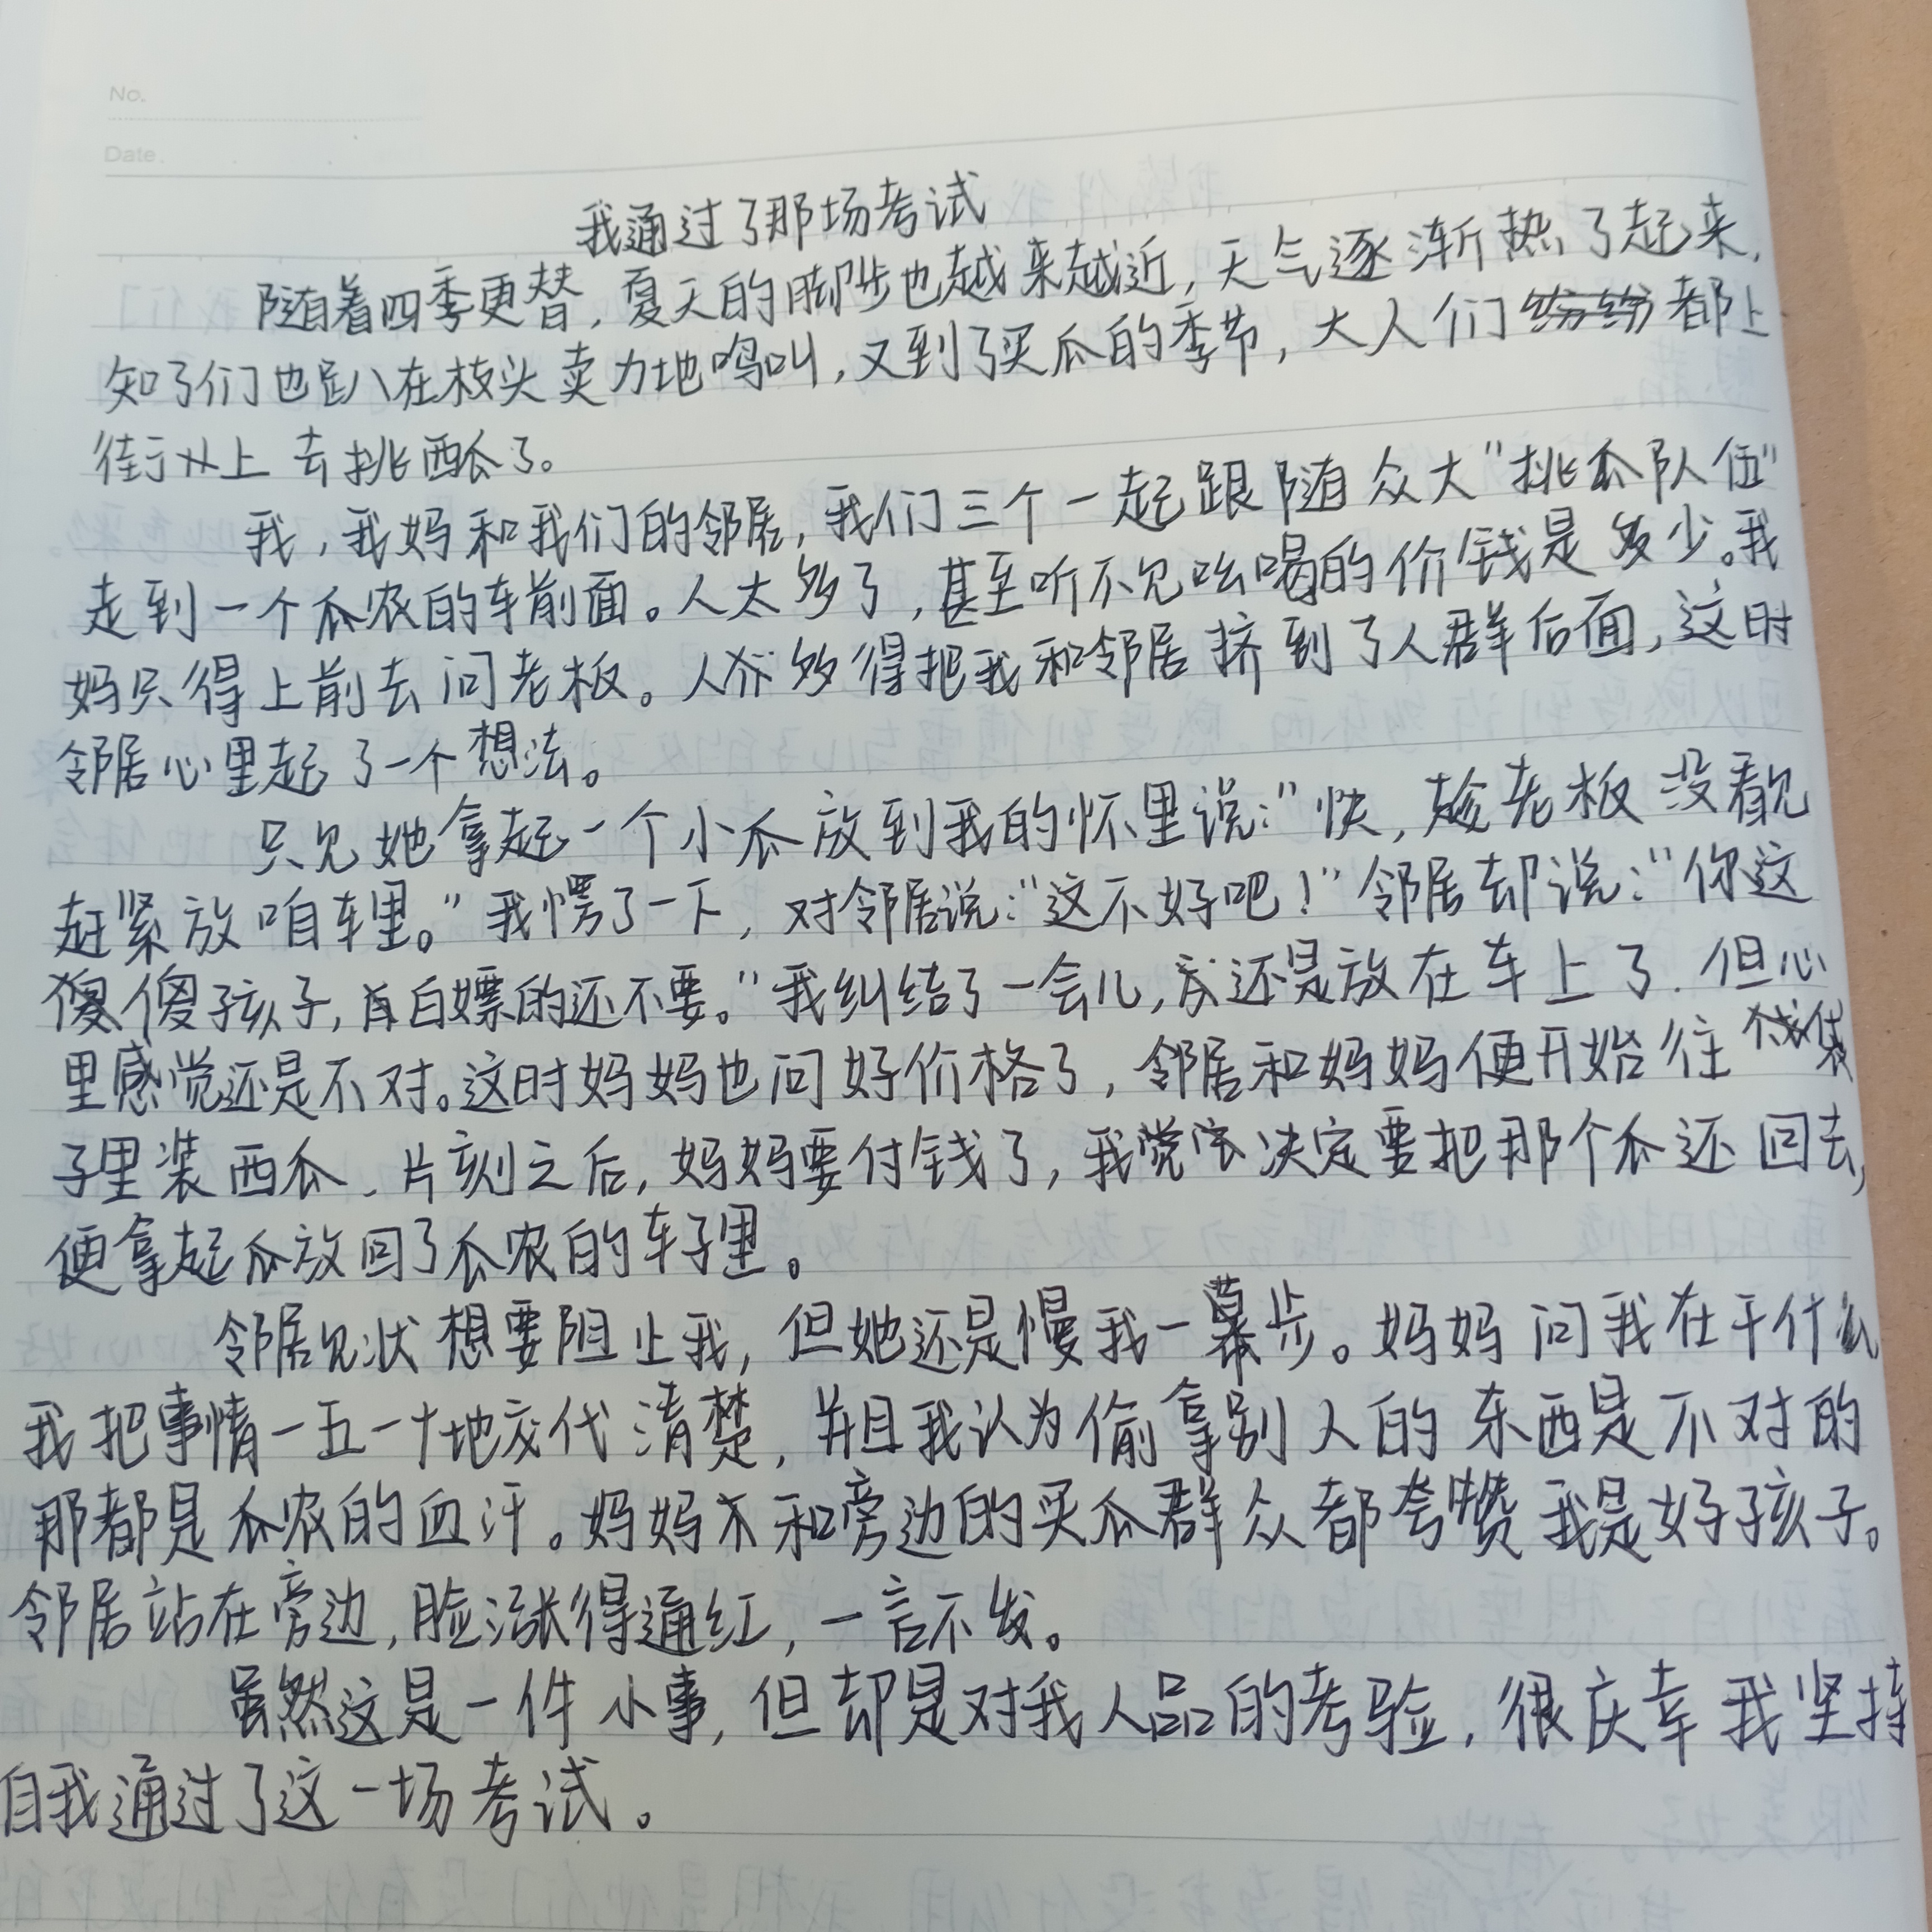 No.
Date.
我通过了那场考试
随着四季更替，夏天的脚步也越来越近，天气逐渐热了起来，
知了们也趴在枝头卖力地鸣叫，又到了买瓜的季节，大人们都上
街上去挑西瓜了。
我，我妈和我们的邻居，我们三个一起跟随众大“挑瓜队伍”
走到一个瓜农的车前面。人太多了，甚至听不见吆喝的价钱是多少。我
妈只得上前去问老板。人多得把我和邻居挤到了人群后面，这时
邻居心里起了一个想法。
只见她拿起一个小瓜放到我的怀里说：“快，趁老板没看见
赶紧放咱车里。”我愣了一下，对邻居说：“这不好吧！”邻居却说：“你这
傻孩子，白嫖的还不要。”我纠结了一会儿，还是放在车上了．但心
里感觉还是不对。这时妈妈也问好价格了，邻居和妈妈便开始往袋
子里装西瓜．片刻之后，妈妈要付钱了，我决定要把那个瓜还回去，
便拿起瓜放回了瓜农的车子里。
邻居见状想要阻止我，但她还是慢我一步。妈妈问我在干什么
我把事情一五一十地交代清楚，并且我认为偷拿别人的东西是不对的
那都是瓜农的血汗。妈妈和旁边的买瓜群众都夸赞我是好孩子。
邻居站在旁边，脸涨得通红，一言不发。
虽然这是一件小事，但却是对我人品的考验，很庆幸我坚持
自我通过了这一场考试。